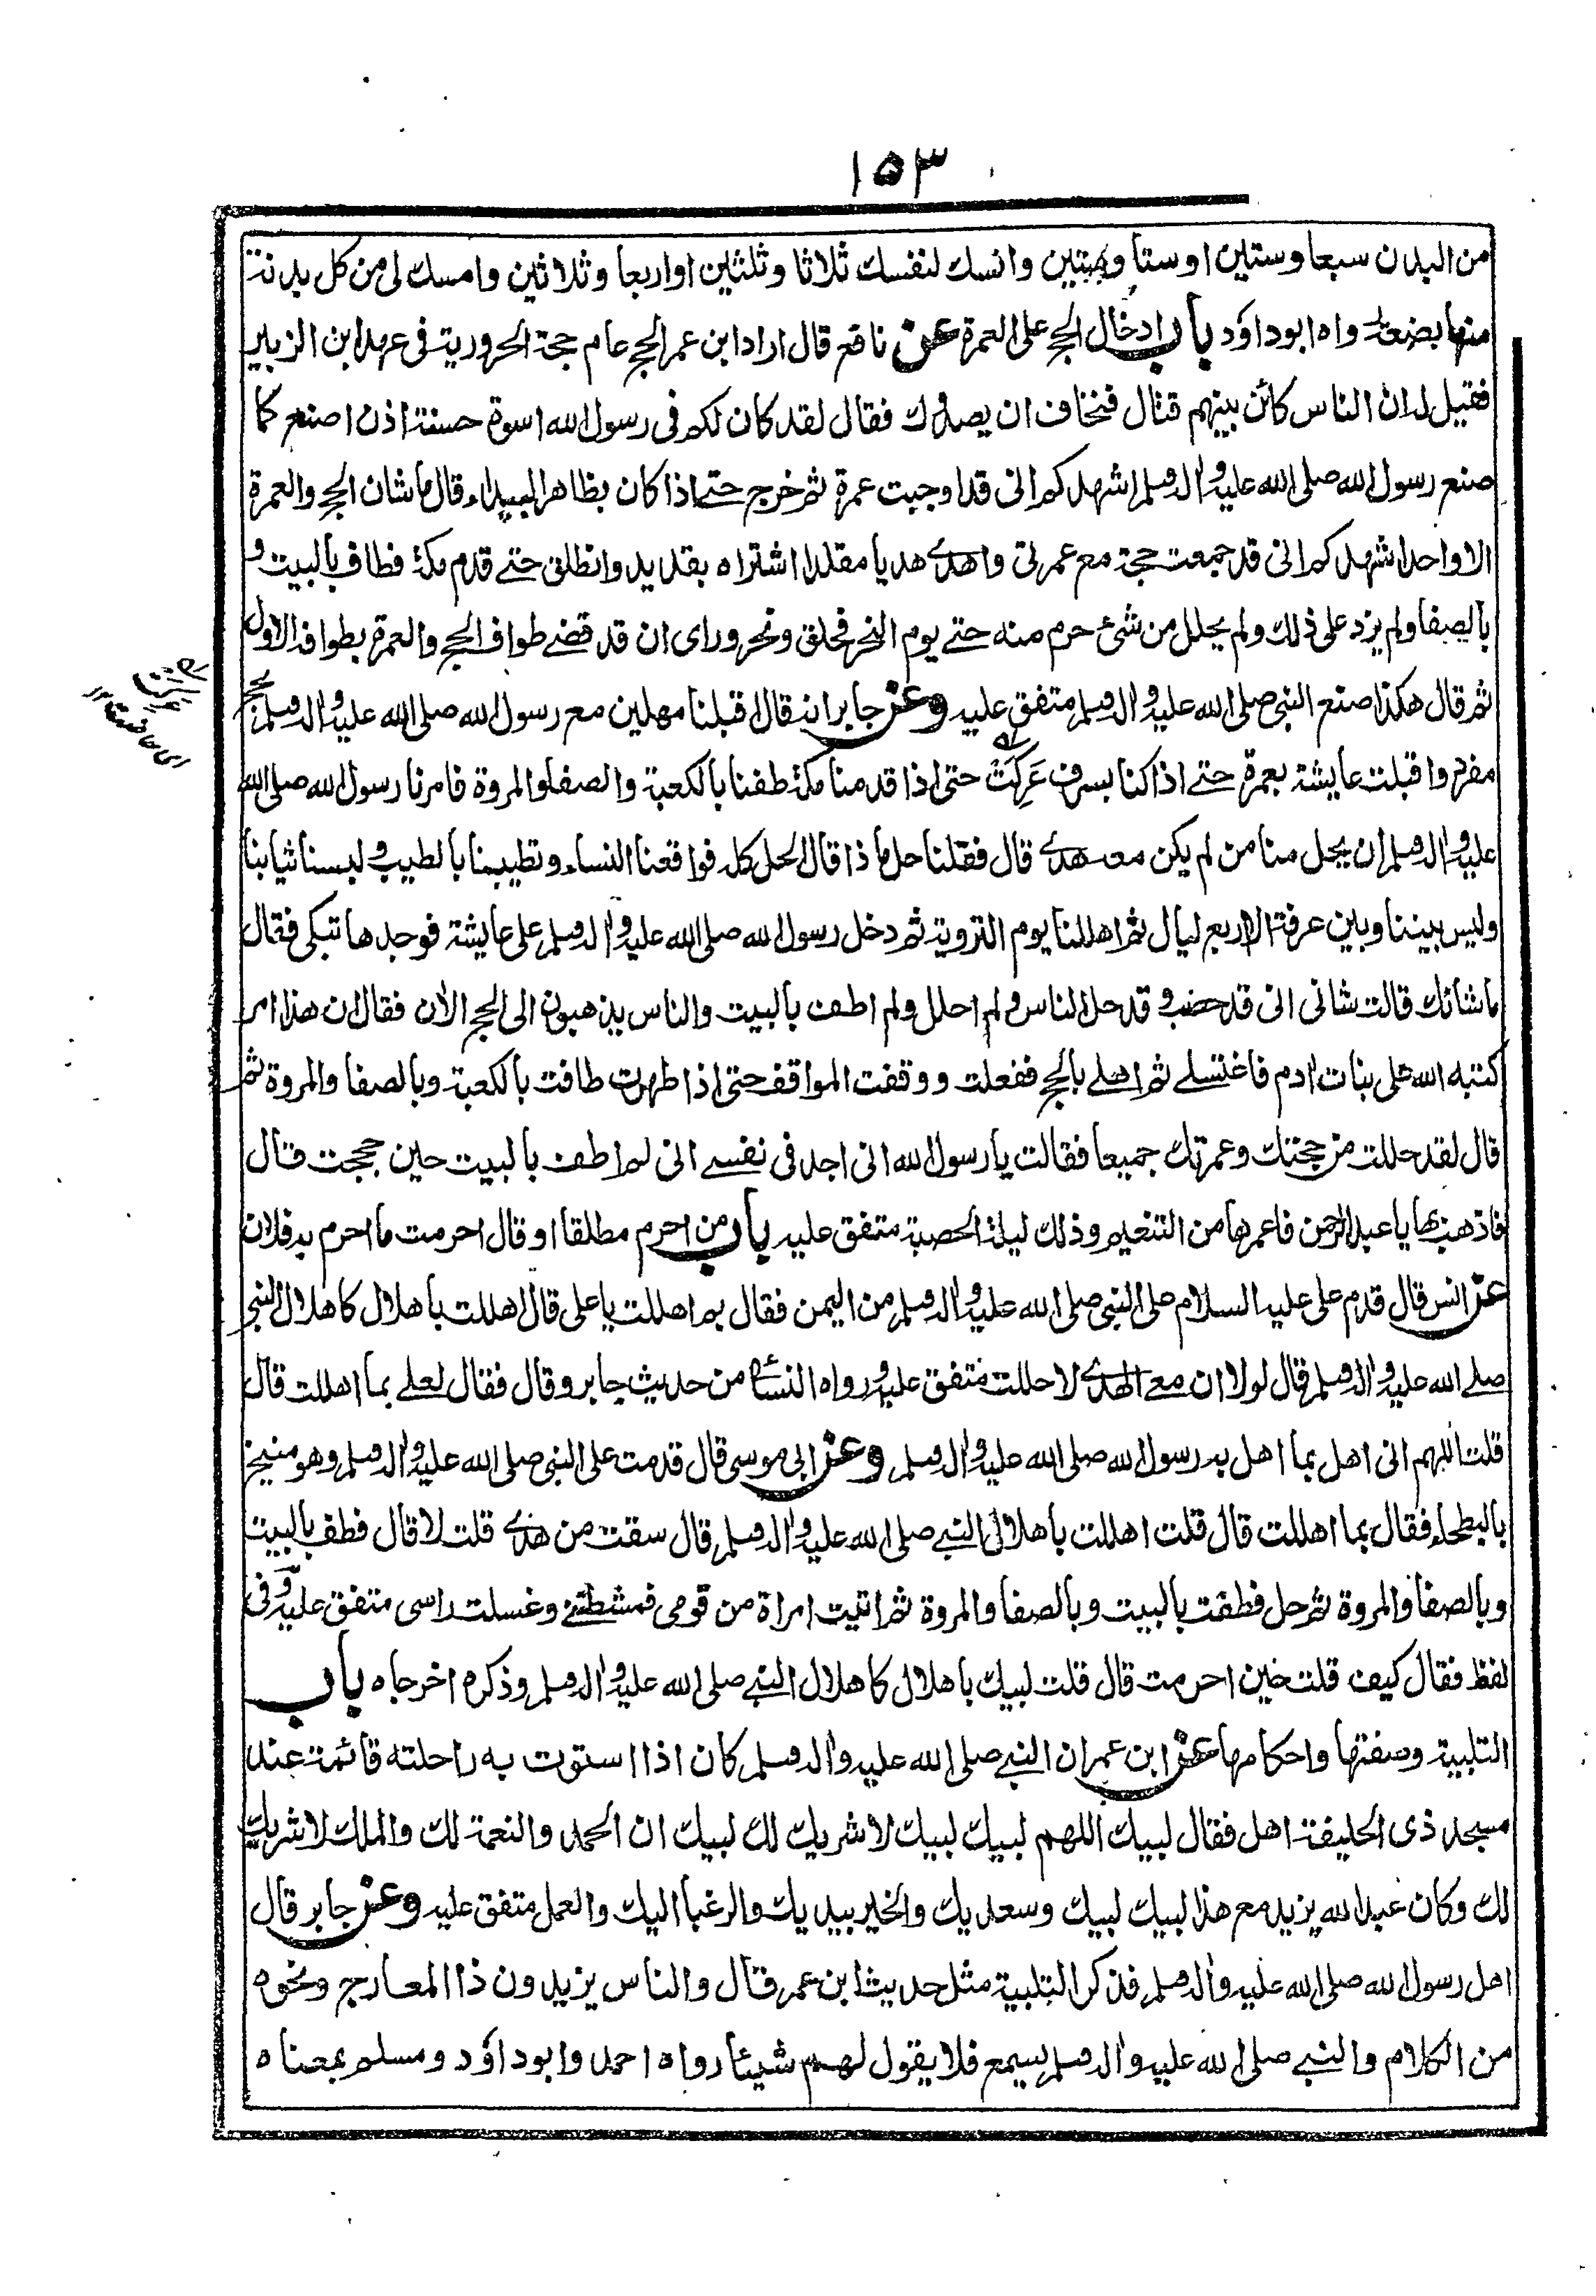 ١٥٣
من البدن سبعا وستين او ستا وستين وانسك لنفسك ثلاثا وثلثين او اربعا وثلاثين وامسك لى من كل بدنة
منها بضعة رواه ابوداؤد باب ادخال الحج على العمرة عن نافع قال اراد ابن عمر الحج عام حجة الحرورية فى عهد ابن الزبير
فقيل له ان الناس كائن بينهم قتال فنخاف ان يصدوك فقال لقد كان لكم فى رسول الله اسوة حسنة اذن اصنع كما
صنع رسول الله صلى الله عليه واله وسلم اشهدكم انى قد اوجبت عمرة ثم خرج حتے اذا كان بظاهر البيداء قال ما شان الحج والعمرة
الا واحد اشهدكم انى قد جمعت حجة مع عمرتى واهدے هديا مقلدا اشتراه بقديد وانطلق حتے قدم مكة فطاف بالبيت و
بالصفا ولم يزد على ذلك ولم يحلل من شئ حرم منه حتے يوم النحر فحلق ونحر وراى ان قد قضے طواف الحج والعمرة بطوافه الاول
ثم قال هكذا صنع النبى صلى الله عليه واله وسلم متفق عليه وعن جابر انه قال اقبلنا مهلين مع رسول الله صلى الله عليه واله وسلم بحج
مفرد واقبلت عايشة بعمرة حتے اذا كنا بسرف عَرِكَتْ حتى اذا قدمنا مكة طفنا بالكعبة والصفا والمروة فامرنا رسول الله صلى الله
عليه واله وسلم ان يحل منا من لم يكن معه هدے قال فقلنا حل ما ذا قال الحل كله فواقعنا النساء وتطيبنا بالطيب ولبسنا ثيابنا
وليس بيننا وبين عرفة الا اربع ليال ثم اهللنا يوم التروية ثم دخل رسول الله صلى الله عليه واله وسلم على عايشة فوجدها تبكى فقال
ما شانك قالت شانى انى قد حضت وقد حل الناس ولم احلل ولم اطف بالبيت والناس يذهبون الى الحج الان فقال ان هذا امر
كتبه الله على بنات ادم فاغتسلے ثم اهلے بالحج ففعلت ووقفت المواقف حتى اذا طهرت طافت بالكعبة وبالصفا والمروة ثم
قال لقد حللت من حجتك وعمرتك جميعا فقالت يا رسول الله انى اجد فى نفسے انى لم اطف بالبيت حين حججت قال
فاذهب بها يا عبد الرحمن فاعمرها من التنعيم وذلك ليلة الحصبة متفق عليه باب من احرم مطلقا او قال احرمت ما احرم به فلان
عن انس قال قدم على عليه السلام على النبى صلى الله عليه واله وسلم من اليمن فقال بم اهللت يا على قال اهللت باهلال كاهلال النبى
صلے الله عليه واله وسلم قال لولا ان معے الهدے لاحللت متفق عليه ورواه النسائى من حديث جابر وقال فقال لعلے بما اهللت قال
قلت اللهم انى اهل بما اهل به رسول الله صلى الله عليه واله وسلم وعن ابى موسى قال قدمت على النبى صلى الله عليه واله وسلم وهو منيخ
بالبطحاء فقال بما اهللت قال قلت اهللت باهلال النبے صلى الله عليه واله وسلم قال سقت من هدے قلت لا قال فطف بالبيت
وبالصفا والمروة ثم حل فطفت بالبيت وبالصفا والمروة ثم اتيت امراة من قومى فمشطتنے وغسلت راسى متفق عليه وفى
لفظ فقال كيف قلت حين احرمت قال قلت لبيك باهلال كاهلال النبے صلى الله عليه واله وسلم وذكره اخرجاه باب
التلبية وصفتها واحكامها عن ابن عمر ان النبے صلى الله عليه واله وسلم كان اذا استوت به راحلته قائمة عند
مسجد ذى الحليفة اهل فقال لبيك اللهم لبيك لبيك لا شريك لك لبيك ان الحمد والنعمة لك والملك لا شريك
لك وكان عبد الله يزيد مع هذا لبيك لبيك وسعديك والخير بيديك والرغبا اليك والعمل متفق عليه وعن جابر قال
اهل رسول الله صلى الله عليه واله وسلم فذكر التلبية مثل حديث ابن عمر قال والناس يزيدون ذا المعارج ونحوه
من الكلام والنبے صلى الله عليه واله وسلم يسمع فلا يقول لهم شيئا رواه احمد وابوداؤد ومسلم بمعناه